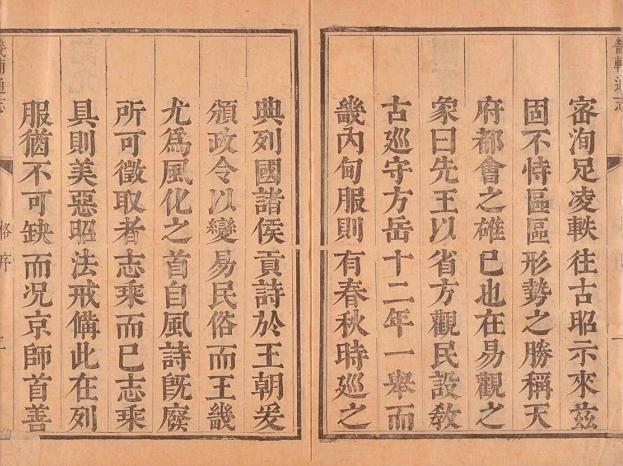 審洵足凌軼往古昭示來茲
固不恃區區形勢之勝稱天
府都會之雄已也在易觀之
象曰先王以省方觀民設教
古巡守方岳十二年一舉而
畿內甸服則有春秋時巡之
典列國諸侯貢詩於王朝爰
頒政令以變易民俗而王畿
尤為風化之首自風詩旣廢
所可徵取者志乘而已志乘
具則美惡昭法戒備此在列
服猶不可缺而況京師首善
畿輔通志
格序